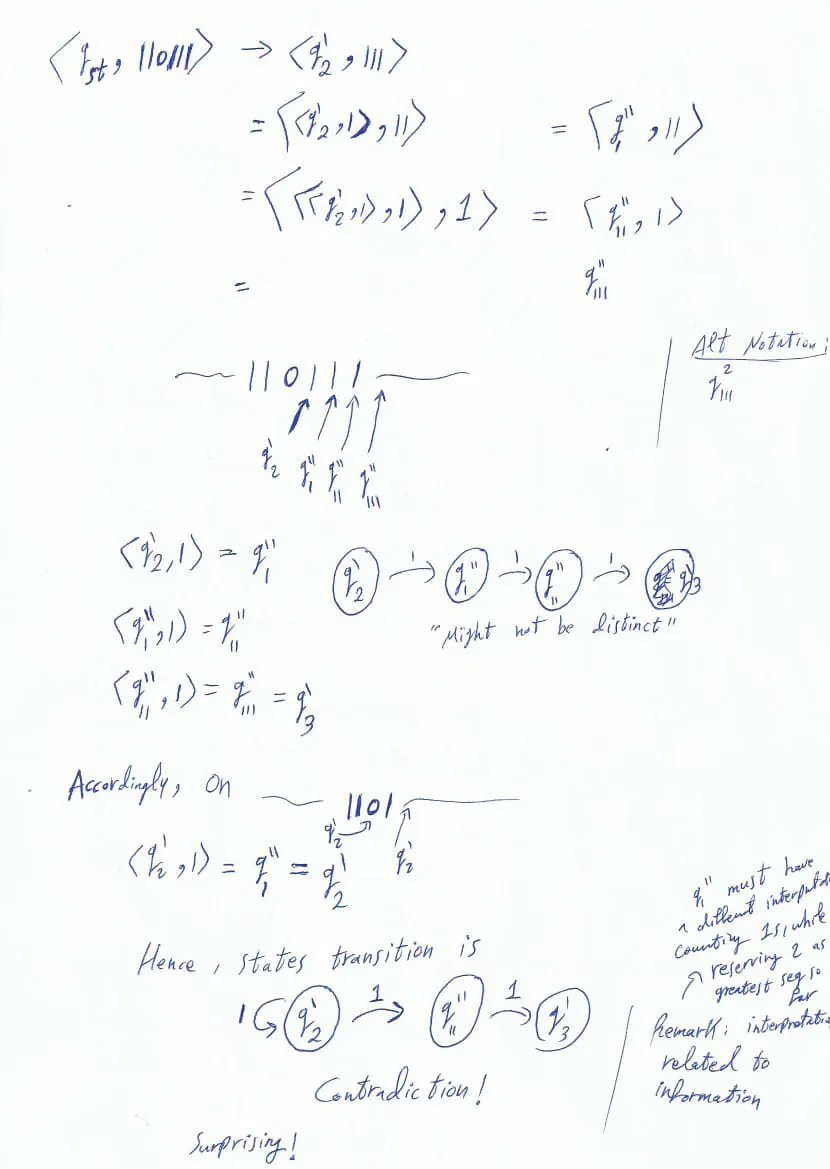 ⟨q_st, 110111⟩ → ⟨q'_2, 111⟩
= ⟨⟨q'_2, 1⟩, 11⟩ = ⟨q''_1, 11⟩
= ⟨⟨⟨q'_2, 1⟩, 1⟩, 1⟩ = ⟨q''_11, 1⟩
= q''_111
Alt Notation:
q^2_111
110111
q'_2 q''_1 q''_11 q''_111
⟨q'_2, 1⟩ = q''_1
⟨q''_1, 1⟩ = q''_11
⟨q''_11, 1⟩ = q''_111 = q'_3
q'_2 1→ q''_1 1→ q''_11 1→ q'_3
"Might not be distinct"
Accordingly, on 1101
q'_2 q'_2
⟨q'_2, 1⟩ = q''_1 = q'_2
Hence, states transition is
1 q'_2 1→ q''_11 1→ q'_3
Contradiction!
Surprising!
q''_1 must have
a different interpretat
counting 1s, while
reserving 2 as
greatest seq so
far
Remark: interpretatio
related to
information